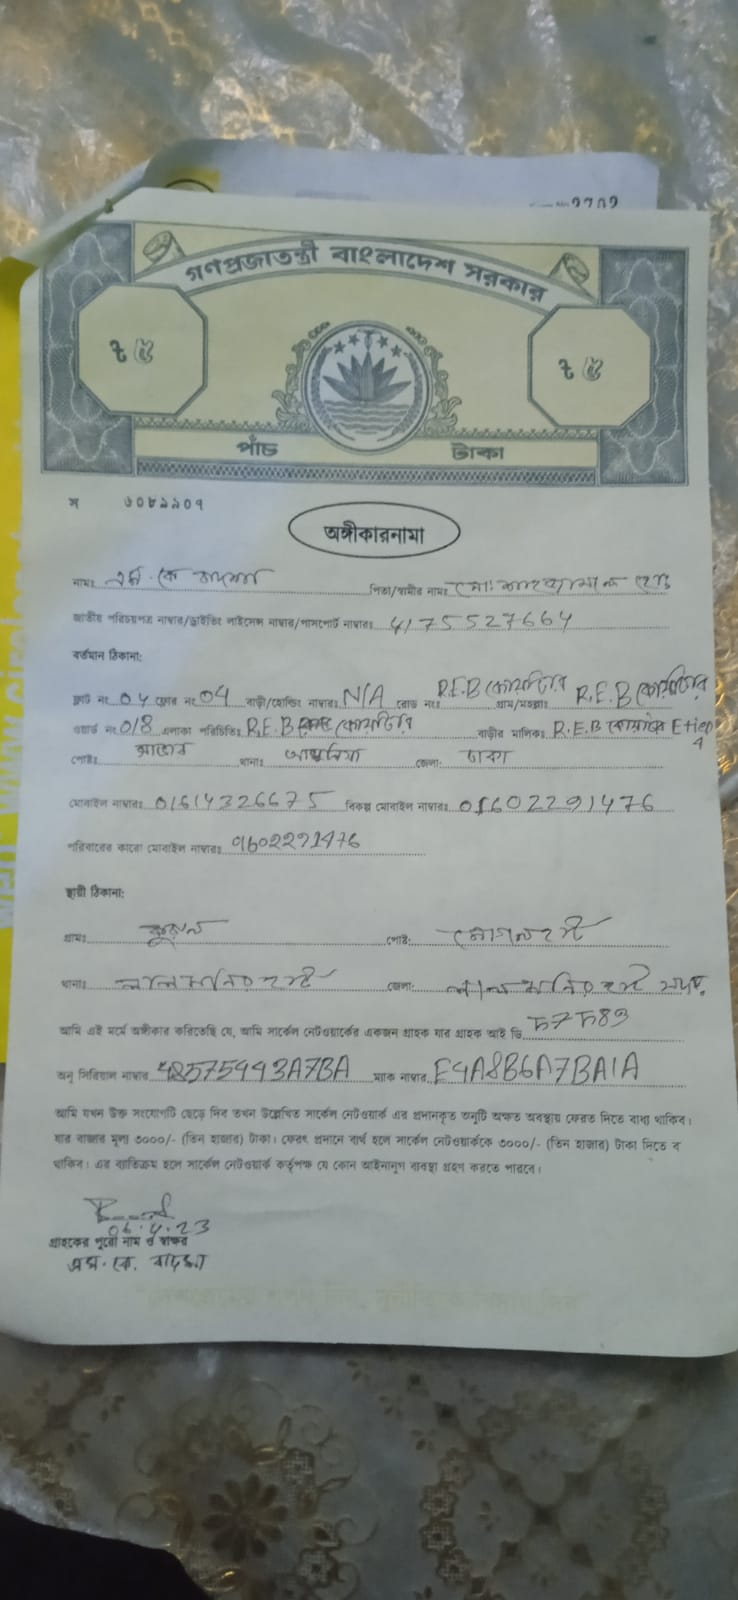 গণপ্রজাতন্ত্রী বাংলাদেশ সরকার
৳ ৫ ৳ ৫
পাঁচ টাকা
স ৩০৮৯৯০৭
অঙ্গীকারনামা
নামঃ এস.কে বাদশা পিতা/স্বামীর নামঃ মোঃ
জাতীয় পরিচয়পত্র নাম্বার/ড্রাইভিং লাইসেন্স নাম্বার/পাসপোর্ট নাম্বারঃ 4175527664
বর্তমান ঠিকানা:
ফ্লাট নং 04 ফ্লোর নং 04 বাড়ী/হোল্ডিং নাম্বারঃ N/A রোড নংঃ R.E.B কোয়ার্টার গ্রাম/মহল্লাঃ R.E.B কোয়ার্টার
ওয়ার্ড নং 018 এলাকা পরিচিতিঃ R.E.B কোয়ার্টার বাড়ীর মালিকঃ R.E.B
পোষ্টঃ সাভার থানাঃ আশুলিয়া জেলাঃ ঢাকা
মোবাইল নাম্বারঃ 01614326675 বিকল্প মোবাইল নাম্বারঃ 01602291476
পরিবারের কারো মোবাইল নাম্বারঃ 01602291476
স্থায়ী ঠিকানা:
গ্রামঃ পোষ্টঃ মোগলহাট
থানাঃ লালমনিরহাট জেলাঃ লালমনিরহাট সদর
আমি এই মর্মে অঙ্গীকার করিতেছি যে, আমি সার্কেল নেটওয়ার্কের একজন গ্রাহক যার গ্রাহক আই ডি
অনু সিরিয়াল নাম্বার 48575443A7BA ম্যাক নাম্বার E4A8B6A7BA1A
আমি যখন উক্ত সংযোগটি ছেড়ে দিব তখন উল্লেখিত সার্কেল নেটওয়ার্ক এর প্রদানকৃত অনুটি অক্ষত অবস্থায় ফেরত দিতে বাধ্য থাকিব।
যার বাজার মূল্য ৩০০০/- (তিন হাজার) টাকা। ফেরৎ প্রদানে ব্যর্থ হলে সার্কেল নেটওয়ার্ককে ৩০০০/- (তিন হাজার) টাকা দিতে ব
থাকিব। এর ব্যতিক্রম হলে সার্কেল নেটওয়ার্ক কর্তৃপক্ষ যে কোন আইনানুগ ব্যবস্থা গ্রহণ করতে পারবে।
06.4.23
গ্রাহকের পুরো নাম ও স্বাক্ষর
এস.কে. বাদশা